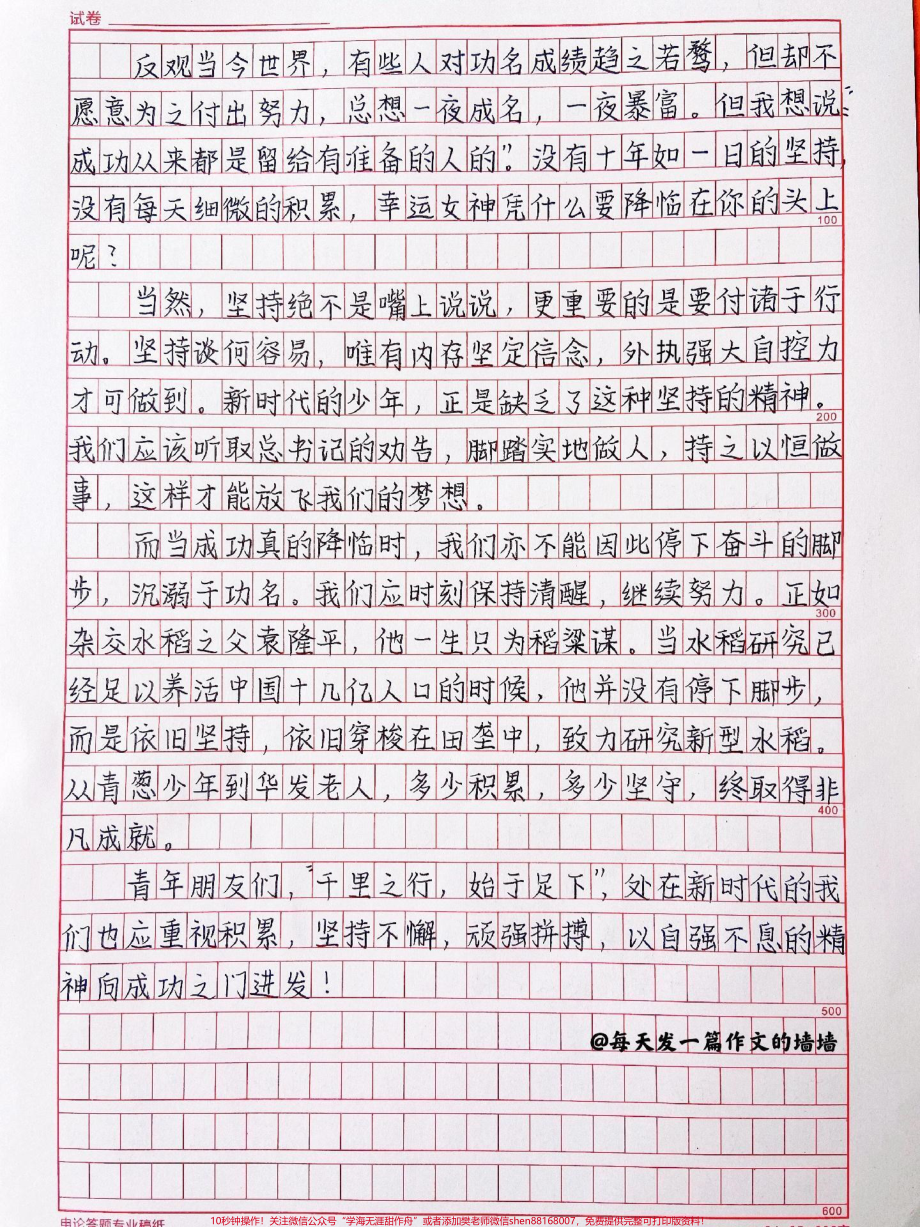 试卷
反观当今世界，有些人对功名成绩趋之若鹜，但却不
愿意为之付出努力，总想一夜成名，一夜暴富。但我想说：“
成功从来都是留给有准备的人的”。没有十年如一日的坚持，
没有每天细微的积累，幸运女神凭什么要降临在你的头上
100
呢？
当然，坚持绝不是嘴上说说，更重要的是要付诸于行
动。坚持谈何容易，唯有内存坚定信念，外执强大自控力
才可做到。新时代的少年，正是缺乏了这种坚持的精神。
200
我们应该听取总书记的劝告，脚踏实地做人，持之以恒做
事，这样才能放飞我们的梦想。
而当成功真的降临时，我们亦不能因此停下奋斗的脚
步，沉溺于功名。我们应时刻保持清醒，继续努力。正如
300
杂交水稻之父袁隆平，他一生只为稻粱谋。当水稻研究已
经足以养活中国十几亿人口的时候，他并没有停下脚步，
而是依旧坚持，依旧穿梭在田垄中，致力研究新型水稻。
从青葱少年到华发老人，多少积累，多少坚守，终取得非
400
凡成就。
青年朋友们，“千里之行，始于足下”，处在新时代的我
们也应重视积累，坚持不懈，顽强拼搏，以自强不息的精
神向成功之门进发！
500
@每天发一篇作文的墙墙
600
申论答题专业稿纸
10秒钟操作！关注微信公众号“学海无涯甜作舟”或者添加樊老师微信shen88168007，免费提供完整可打印版资料！